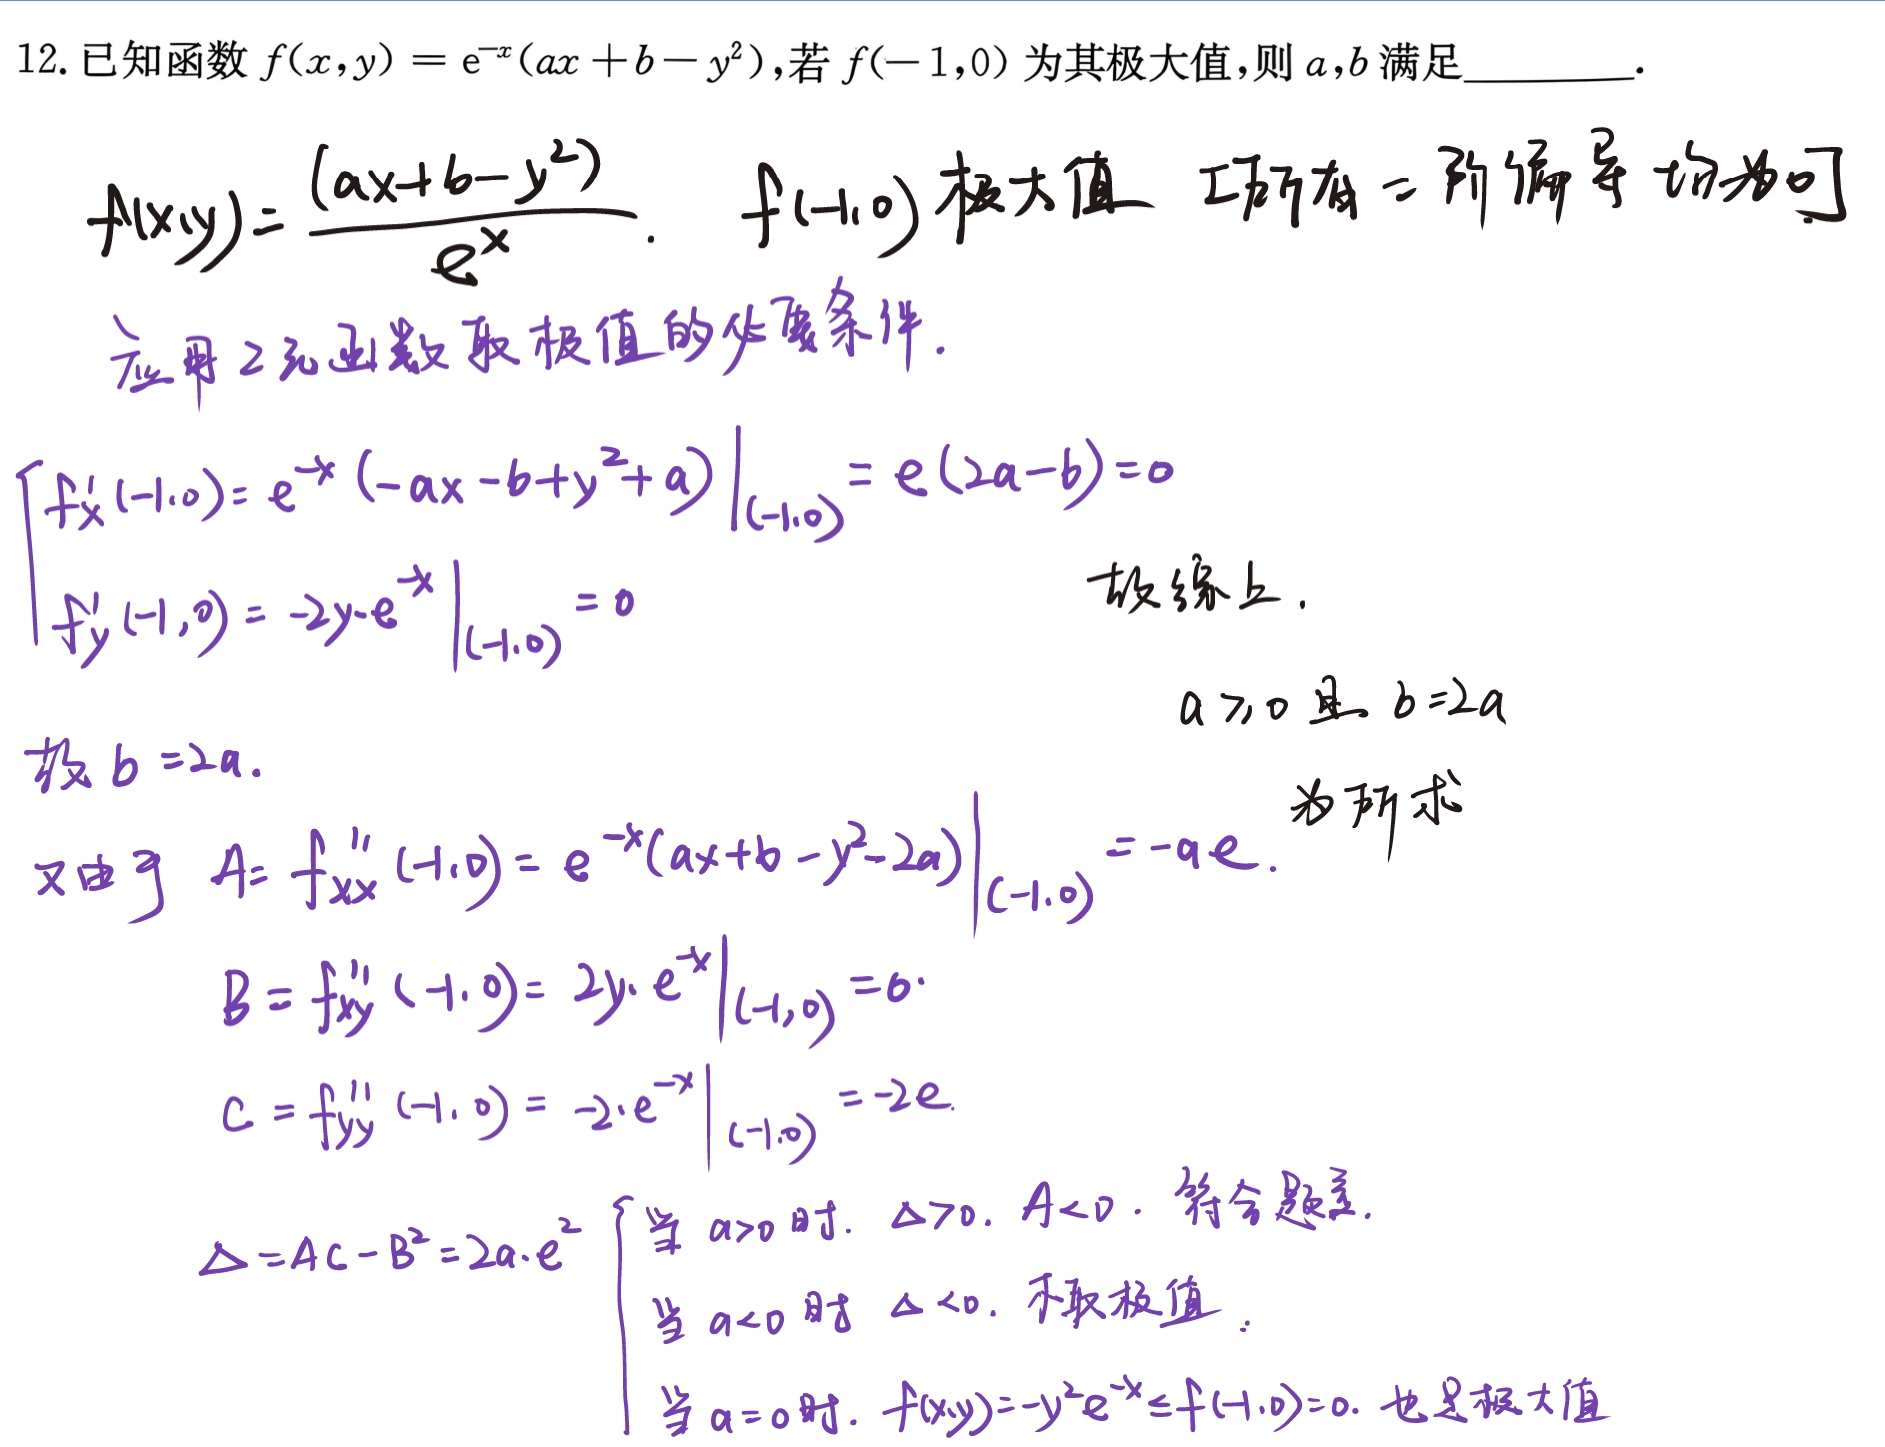 12. 已知函数 f(x,y) = e^{-x}(ax+b-y²),若 f(-1,0) 为其极大值,则 a,b 满足________.
f(x,y)= (ax+b-y²)/e^x . f(-1,0) 极大值 [所有二阶偏导均为0]
应用2元函数取极值的必要条件.
f'x(-1.0)= e^{-x}(-ax-b+y²+a)|(-1.0) = e(2a-b)=0
f'y(-1,0)= -2y·e^{-x}|(-1.0) =0
故 b=2a.
又由于 A= f''xx(-1.0)= e^{-x}(ax+b-y²-2a)|(-1.0) =-ae.
B= f''xy(-1.0)= 2y·e^{-x}|(-1,0) =0.
C= f''yy(-1.0)= -2·e^{-x}|(-1.0) =-2e.
△=AC-B²=2a·e²
当 a>0 时. △>0. A<0. 符合题意.
当 a<0 时 △<0. 不取极值.
当 a=0 时. f(x,y)=-y²e^{-x}≤f(-1.0)=0. 也是极大值
故综上.
a≥0 且 b=2a
为所求